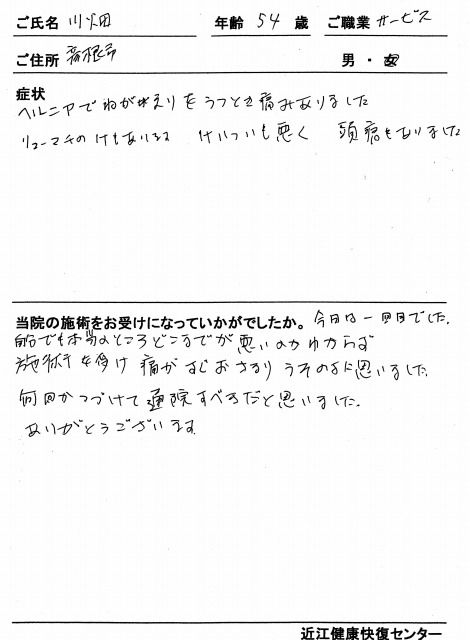 ご氏名 川畑 年齢 54 歳 ご職業 サービス
ご住所 彦根市 男 ・ 女
症状
ヘルニアで ねがえり をうつとき痛みありました
リューマチの けもあります けいついも悪く 頭痛もありました
当院の施術をお受けになっていかがでしたか。 今日は一回目でした。
自分でも本当のところどこまでが 悪いのかわからず
施術を受け 痛みが おさまり うそのように思いました。
何回かつづけて通院すべきだと思いました。
ありがとうございます
近江健康快復センター